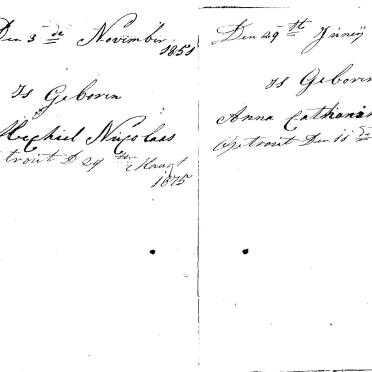 Den 3 de November
1851
Is Geboren
Michiel Nicolaas
trout D 29 ste Maart
1875
Den 29 ste Juney
Is Geboren
Anna Catharina
Getrout Den 11 de